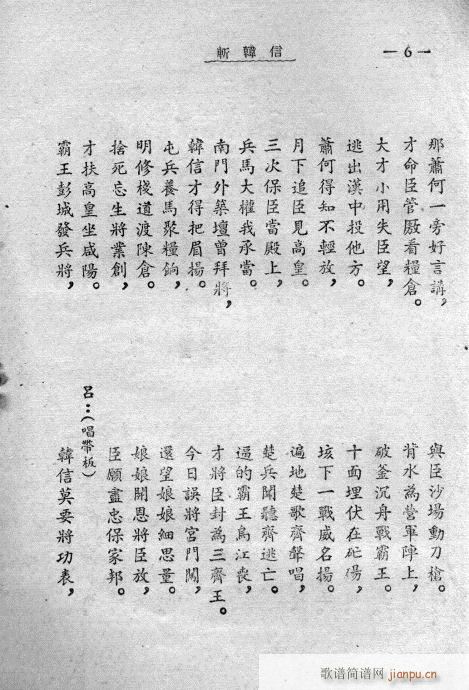 斬韓信
—6—
那蕭何一旁好言講，
才命臣管廒看糧倉。
大才小用失臣望，
逃出漢中投他方。
蕭何得知不輕放，
月下追臣見高皇。
三次保臣當殿上，
兵馬大權我承當。
南門外築壇曾拜將，
韓信才得把眉揚。
屯兵養馬聚糧餉，
明修棧道渡陳倉。
捨死忘生將業創，
才扶高皇坐咸陽。
霸王彭城發兵將，
與臣沙場動刀槍。
背水為營軍陣上，
破釜沉舟戰霸王。
十面埋伏在砣碭，
垓下一戰威名揚。
遍地楚歌齊聲唱，
楚兵聞聽齊逃亡。
逼的霸王烏江喪，
才將臣封為三齊王。
今日誤將宮門闖，
還望娘娘細思量。
娘娘開恩將臣放，
臣願盡忠保家邦。
呂：（唱帶板）
韓信莫要將功表，
歌谱简谱网
jianpu.cn